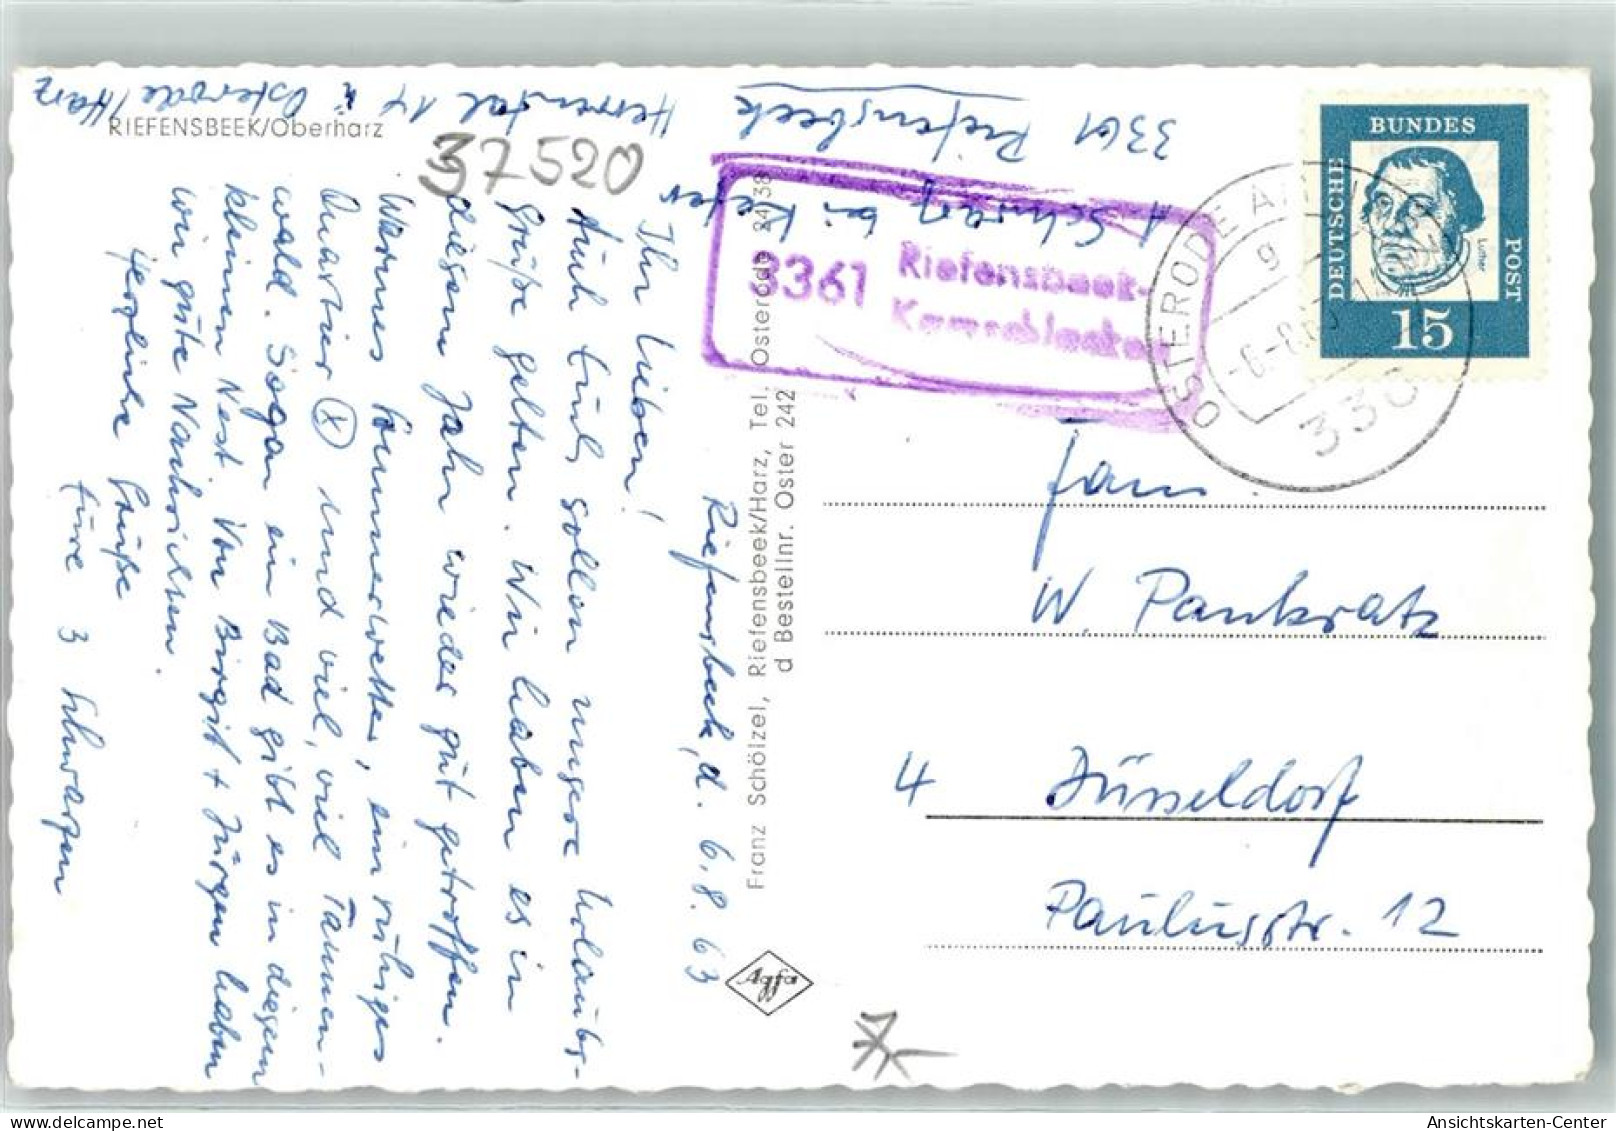 RIEFENSBEEK/Oberharz
37520
3361 Riefensbeek
Herrental 14 ü Osterode/Harz
A Schwarz bei Kiefer
3361 Riefensbeek-
Kamschlacken
OSTERODE AM
-6.-8.63
9
336
DEUTSCHE
BUNDES
POST
Luther
15
Riefensbeek, d. 6.8.63
Ihr Lieben!
Auch Euch sollen unsere Urlaubs-
grüße gelten. Wir haben es in
diesem Jahr wieder gut getroffen.
Warmes Sommerwetter, ein ruhiges
Quartier (x) und viel, viel Tannen-
wald. Sogar ein Bad gibt es in diesem
kleinen Nest. Von Birgit + Jürgen haben
wir gute Nachrichten.
Herzliche Grüße
Eure 3 Schwarzen
Franz Schölzel, Riefensbeek/Harz, Tel. Osterode 24138
d Bestellnr. Oster 242
Agfa
Fam.
W. Pankratz
4 Düsseldorf
Paulusstr. 12
7,-
Ansichtskarten-Center